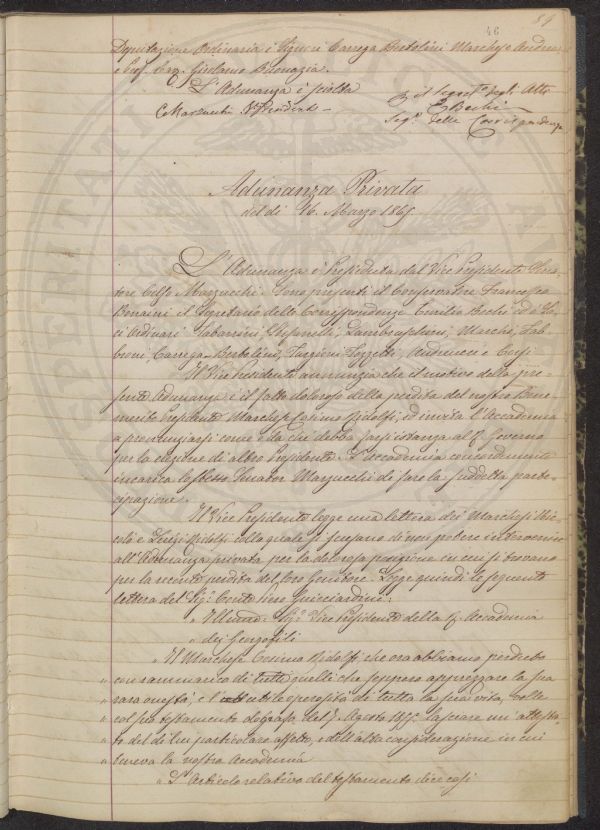 46 59
Deputazione Ordinaria i Signori Carrega Bertolini Marchese Andrea
e Prof. Cav. Girolamo Buonazia.
L'Adunanza è sciolta
C Marzucchi V. Presidente
Il Segret.o degli Atti
E Bechi
Seg.o delle Corrispondenze
Adunanza Privata
del dì 16. Marzo 1865.
L'Adunanza è Presieduta dal Vice Presidente Sena-
tore Celso Marzucchi. Sono presenti il Conservatore Francesco
Bonaini il Segretario delle Corrispondenze Emilio Bechi ed i So-
ci Ordinari Tabarrini, Stefanelli, Lambruschini, Marchi, Fab-
broni, Carrega-Bertolini, Targioni Tozzetti, Andreucci e
Il Vice Presidente annunzia che il motivo della pre-
sente Adunanza è il fatto doloroso della perdita del nostro Bene-
merito Presidente Marchese Cosimo Ridolfi, ed invita l'Accademia
a pronunziarsi come e da chi debba farsi istanza al R. Governo
per la elezione di altro Presidente. L'accademia concordemente
incarica lo stesso Senator Marzucchi di fare la suddetta parte-
cipazione.
Il Vice Presidente legge una lettera dei Marchesi Nic-
colò e Luigi Ridolfi colla quale si scusano di non potere intervenire
all'Adunanza privata per la dolorosa posizione in cui si trovano
per la recente perdita del loro Genitore. Legge quindi la seguente
lettera del Sig.r Conte Piero Guicciardini:
" Illmo. Sig.r Vice Presidente della R. Accademia
" dei Georgofili
" Il Marchese Cosimo Ridolfi, che ora abbiamo perduto
" con rammarico di tutti quelli che seppero apprezzare la sua
" rara onestà, e l'utile operosità di tutta la sua vita, volle
" col suo testamento olografo del Agosto lasciare un attesta-
" to del di lui particolare affetto, e dell'alta considerazione in cui
" teneva la nostra Accademia
" L'articolo relativo del testamento dice così